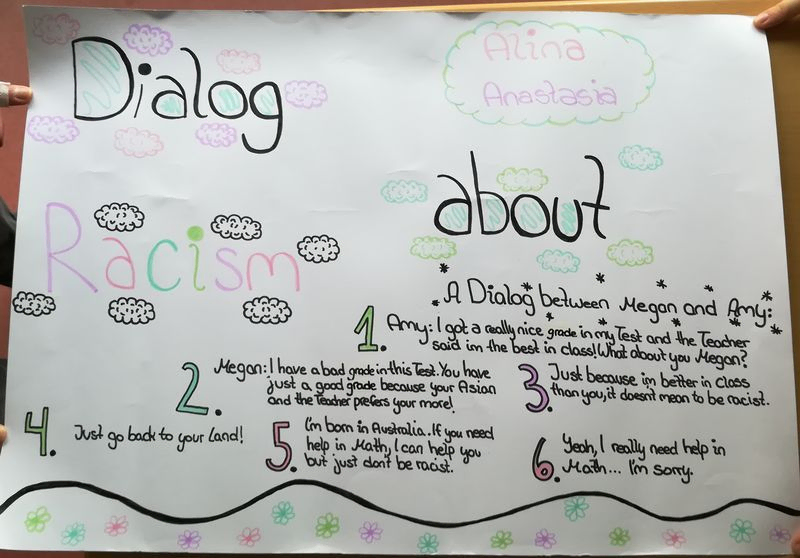 Dialog
Alina
Anastasia
about
Racism
A Dialog between Megan and Amy:
1. Amy: I got a really nice grade in my Test and the Teacher
said im the best in class! What about you Megan?
2. Megan: I have a bad grade in this Test. You have
just a good grade because your Asian
and the Teacher prefers your more!
3. Just because im better in class
than you, it doesn't mean to be racist.
4. Just go back to your Land!
5. I'm born in Australia.. If you need
help in Math, I can help you
but just don't be racist.
6. Yeah, I really need help in
Math... I'm sorry.